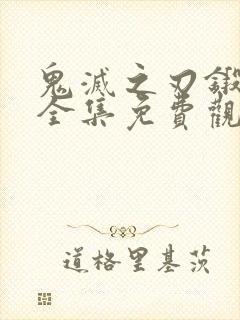 鬼滅之刃鍛
全集免費觀
道格里基茨